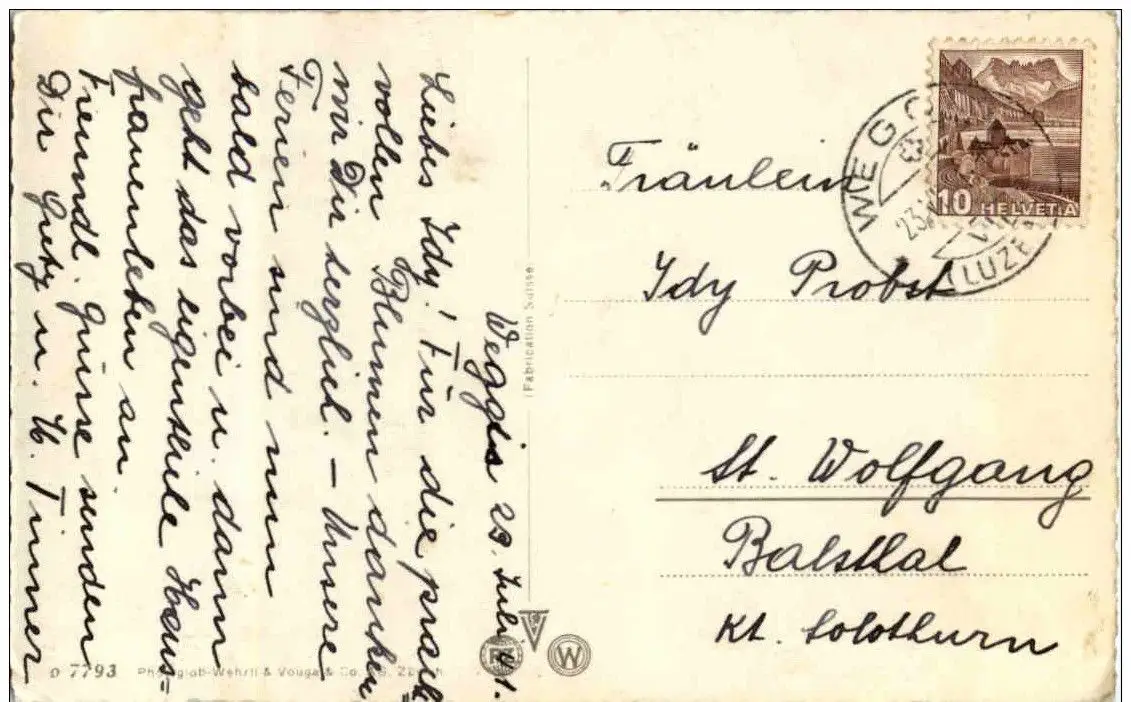 Weggis 23. Juli 41.
Liebes Idy! Für die pracht=
vollen Blumen danken
wir Dir herzlich. – Unsere
Ferien sind nun
bald vorbei u. dann
geht das eigentliche Haus=
frauenleben an.
Freundl. Grüsse senden
Dir Grety u. W. Timner
Fräulein
Idy Probst
St. Wolfgang
Balsthal
Kt. Solothurn
10 HELVETIA
WEGG
23.
LUZE
(Fabrication Suisse)
o 7793 Photoglob-Wehrli & Vouga & Co. AG. Zürich
W